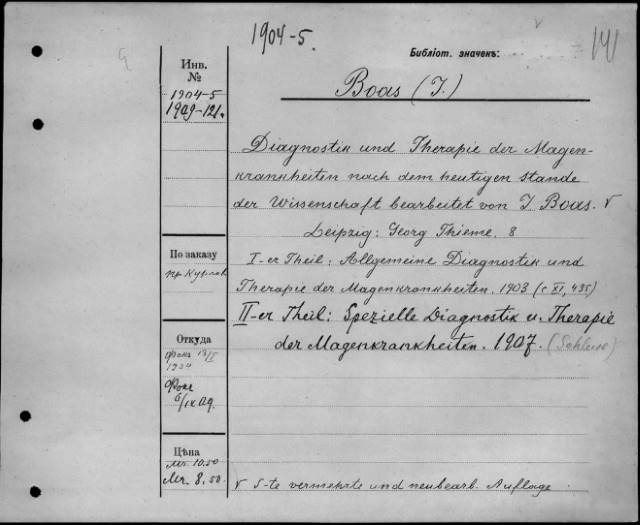 1904-5.
Библіот. значекъ:
Инв.
№
1904-5
1909-121.
Boas (J.)
Diagnostik und Therapie der Magen-
krankheiten nach dem heutigen stande
der Wissenschaft bearbeitet von J. Boas. v
Leipzig: Georg Thieme. 8
По заказу
I-er Theil: Allgemeine Diagnostik und
Therapie der Magenkrankheiten. 1903 (c XI, 435)
II-er Theil: Spezielle Diagnostik u. Therapie
der Magenkrankheiten. 1907. (Schluss)
Откуда
1904
Фокъ
6/IX 09.
Цѣна
Mr. 10.50
Mr. 8.50.
v 5-te vermehrte und neubearb. Auflage.